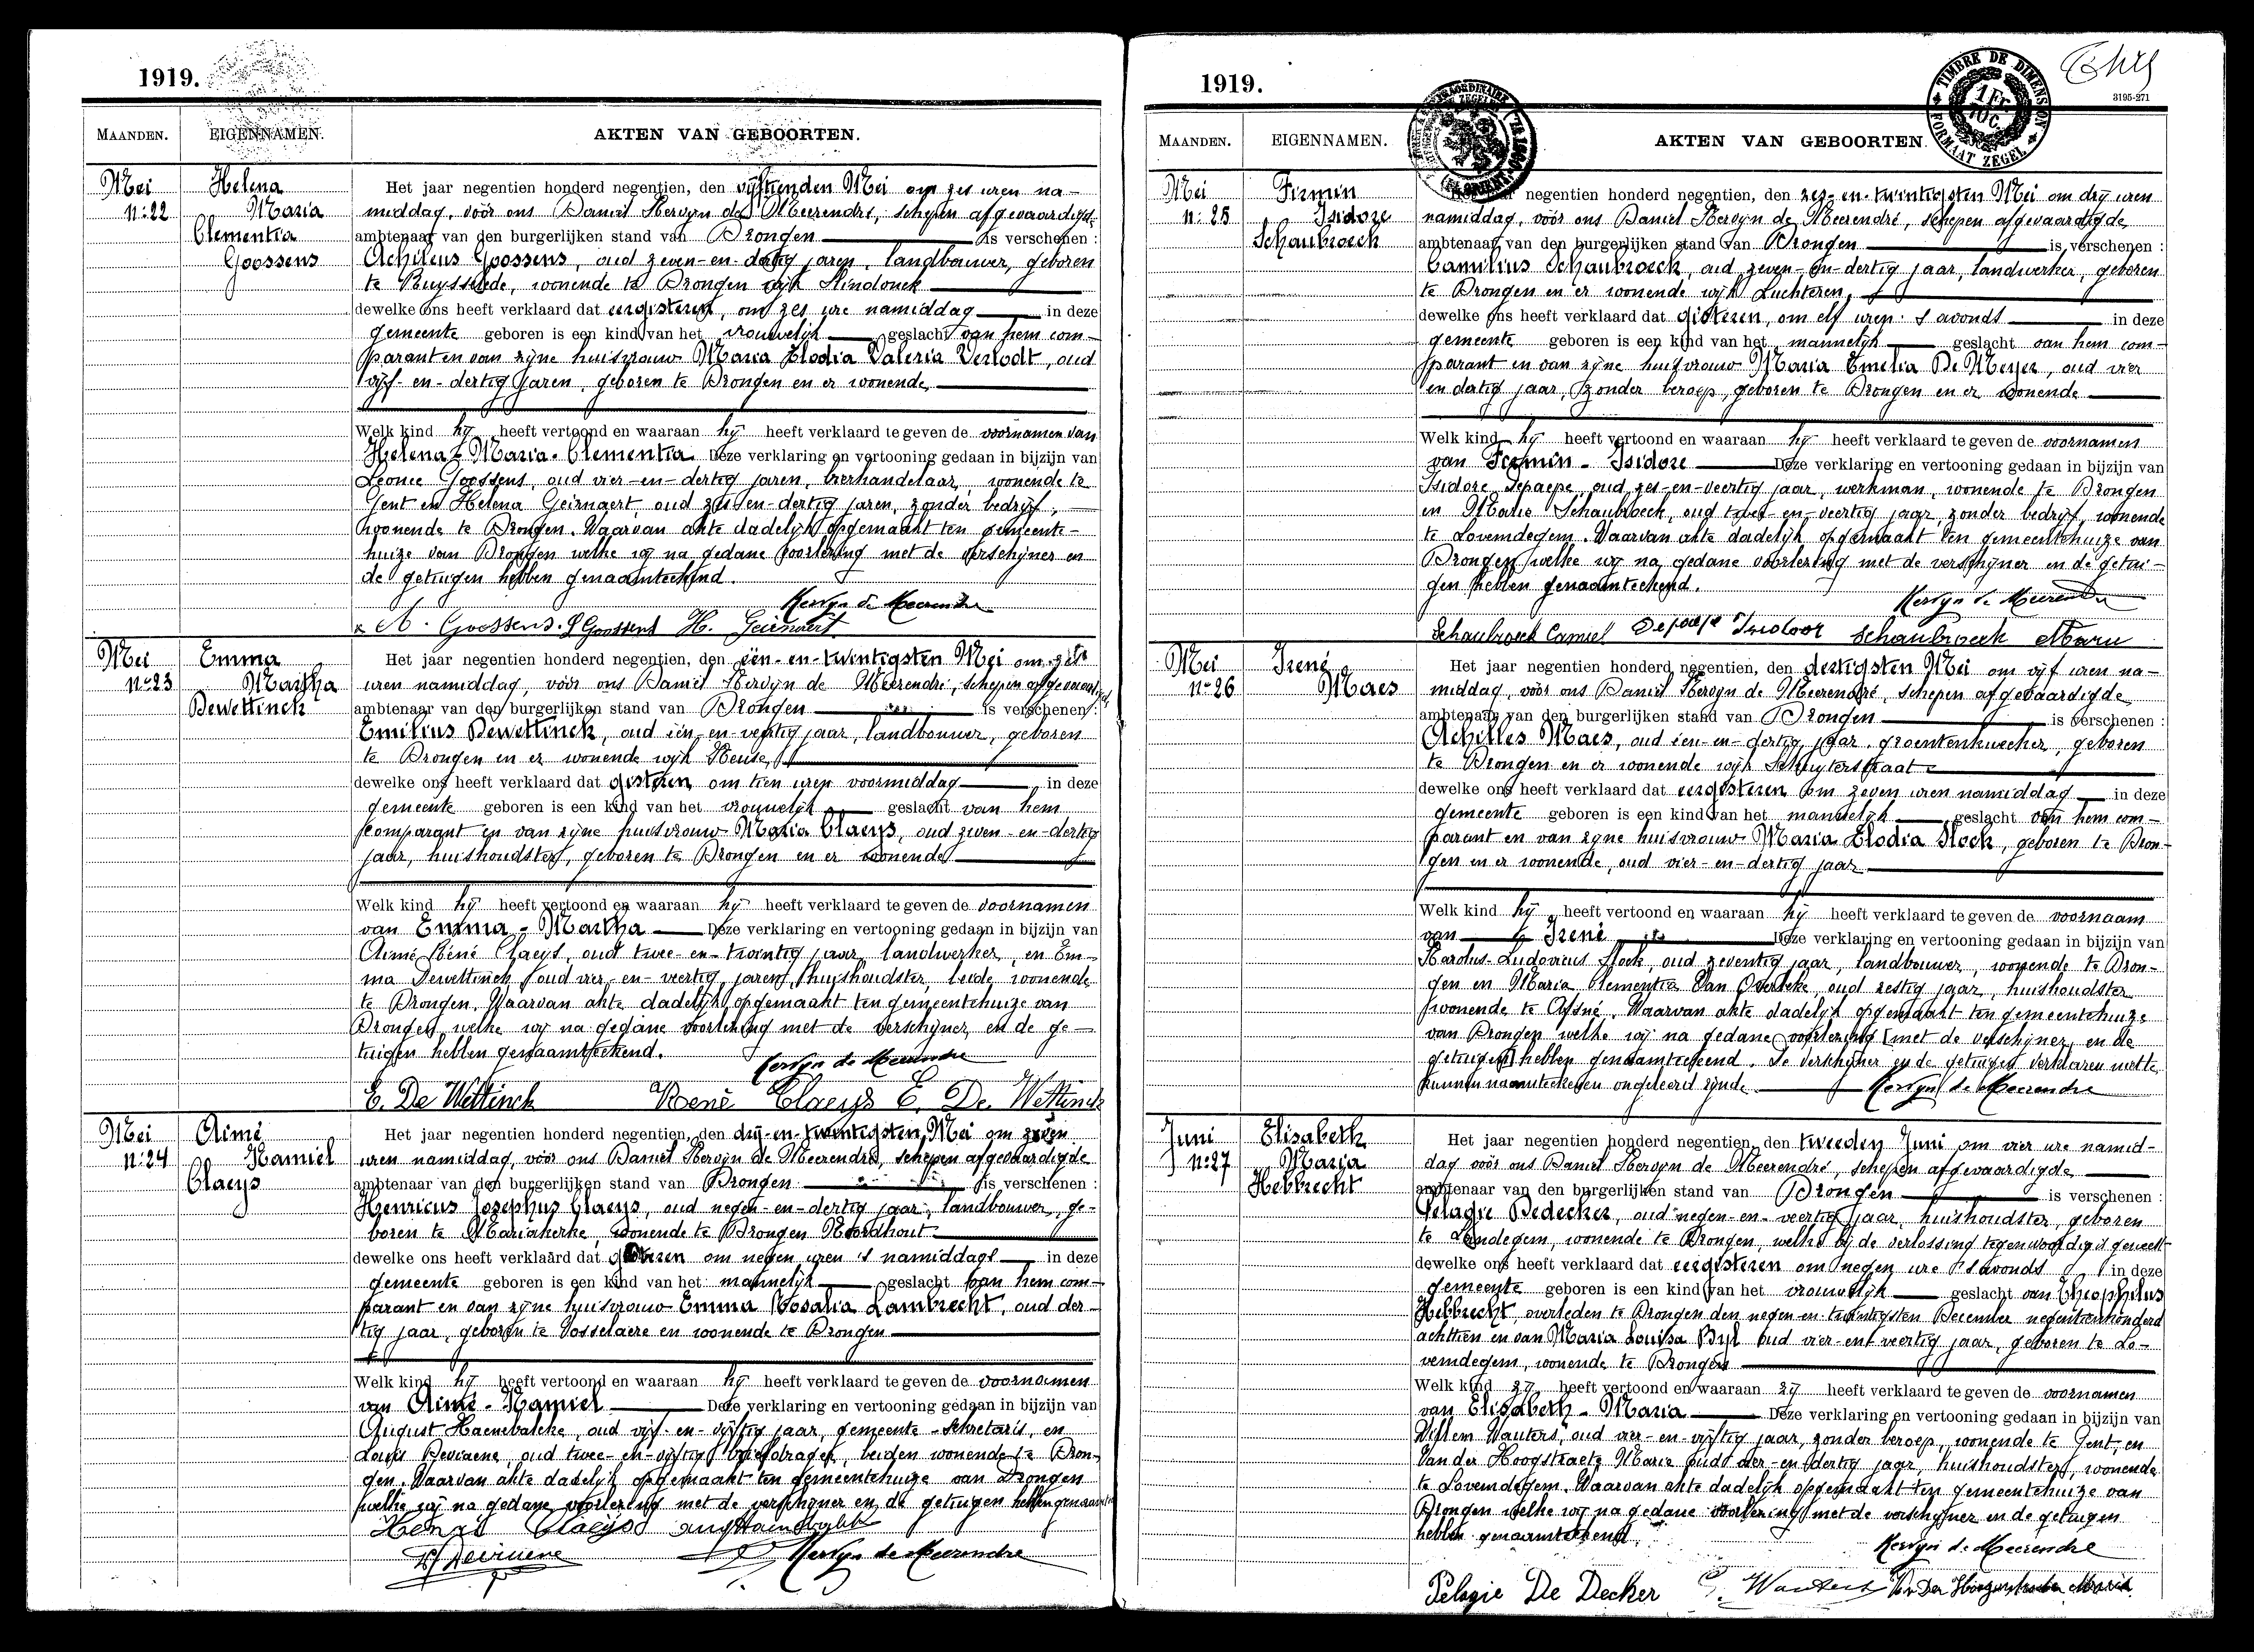 1919.
MAANDEN. EIGENNAMEN. AKTEN VAN GEBOORTEN.
Mei
n° 22
Helena
Maria
Clementia
Goossens
Het jaar negentien honderd negentien, den vijftienden Mei om zes uren na-
middag, vóór ons Daniël Kervyn de Meerendré, schepen afgevaardigde
ambtenaar van den burgerlijken stand van Drongen is verschenen :
Achilles Goossens, oud zeven-en-dertig jaren, landbouwer, geboren
te Ruysselede, wonende te Drongen wijk
dewelke ons heeft verklaard dat eergisteren, om zes ure namiddag in deze
gemeente geboren is een kind van het vrouwelijk geslacht van hem com-
parant en van zijne huisvrouw Maria Elodia Valeria Verlodt, oud
vijf-en-dertig jaren, geboren te Drongen en er wonende
Welk kind hij heeft vertoond en waaraan hij heeft verklaard te geven de voornamen van
Helena-Maria-Clementia Deze verklaring en vertooning gedaan in bijzijn van
Leonce Goossens, oud vier-en-dertig jaren, bierhandelaar, wonende te
Gent en Helena Geirnaert, oud zes-en-dertig jaren, zonder bedrijf,
wonende te Drongen. Waarvan akte dadelijk opgemaakt ten gemeente-
huize van Drongen welke wij na gedane voorlezing met de verschijner en
de getuigen hebben genaamteekend.
Kervyn de Meerendre
A. Goossens. L Goossens H. Geirnaert
Mei
n° 23
Emma
Martha
Dewettinck
Het jaar negentien honderd negentien, den één-en-twintigsten Mei om zes
uren namiddag, vóór ons Daniël Kervyn de Meerendré, schepen afgevaardigde
ambtenaar van den burgerlijken stand van Drongen is verschenen :
Emilius Dewettinck, oud één-en-veertig jaar, landbouwer, geboren
te Drongen en er wonende wijk
dewelke ons heeft verklaard dat gisteren om tien uren voormiddag in deze
gemeente geboren is een kind van het vrouwelijk geslacht van hem
comparant en van zijne huisvrouw Maria Claeys, oud zeven-en-dertig
jaar, huishoudster, geboren te Drongen en er wonende
Welk kind hij heeft vertoond en waaraan hij heeft verklaard te geven de voornamen
van Emma-Martha Deze verklaring en vertooning gedaan in bijzijn van
Aimé Réné Claeys, oud twee-en-twintig jaar, landwerker, en Em-
ma Dewettinck, oud vier-en-veertig jaren, huishoudster, beide wonende
te Drongen. Waarvan akte dadelijk opgemaakt ten gemeentehuize van
Drongen welke wij na gedane voorlezing met de verschijner en de ge-
tuigen hebben genaamteekend.
Kervyn de Meerendre
E. De Wettinck René Claeys E. De Wettinck
Mei
n° 24
Aimé
Kamiel
Claeys
Het jaar negentien honderd negentien, den drij-en-twintigsten Mei om zeven
uren namiddag, vóór ons Daniël Kervyn de Meerendré, schepen afgevaardigde
ambtenaar van den burgerlijken stand van Drongen is verschenen :
Henricus Josephus Claeys, oud negen-en-dertig jaar, landbouwer, ge-
boren te Mariakerke, wonende te Drongen Noordhout
dewelke ons heeft verklaard dat gisteren om negen uren 's namiddags in deze
gemeente geboren is een kind van het mannelijk geslacht van hem com-
parant en van zijne huisvrouw Emma Rosalia Lambrecht, oud der-
tig jaar, geboren te Vosselaere en wonende te Drongen
Welk kind hij heeft vertoond en waaraan hij heeft verklaard te geven de voornamen
van Aimé-Kamiel Deze verklaring en vertooning gedaan in bijzijn van
August Haenebalcke, oud vijf-en-vijftig jaar, gemeente-sekretaris, en
Louis Devriaene, oud twee-en-vijftig, briefdrager, beiden wonende te Dron-
gen. Waarvan akte dadelijk opgemaakt ten gemeentehuize van Drongen
welke wij na gedane voorlezing met de verschijner en de getuigen hebben
Henri Claeys
Kervyn de Meerendre
1919.
TIMBRE DE DIMENSION
1 Fr
10c.
FORMAAT ZEGEL
3195-271
MAANDEN. EIGENNAMEN. AKTEN VAN GEBOORTEN.
Mei
n° 25
Firmin
Isidore
Schaubroeck
negentien honderd negentien, den zes-en-twintigsten Mei om drij uren
namiddag, vóór ons Daniël Kervyn de Meerendré, schepen afgevaardigde
ambtenaar van den burgerlijken stand van Drongen is verschenen :
Camilius Schaubroeck, oud zeven-en-dertig jaar, landwerker, geboren
te Drongen en er wonende wijk Luchteren
dewelke ons heeft verklaard dat gisteren, om elf uren 's avonds in deze
gemeente geboren is een kind van het mannelijk geslacht van hem com-
parant en van zijne huisvrouw Maria Emelia De Meyer, oud vier
en dertig jaar, zonder beroep, geboren te Drongen en er wonende
Welk kind hij heeft vertoond en waaraan hij heeft verklaard te geven de voornamen
van Firmin-Isidore Deze verklaring en vertooning gedaan in bijzijn van
Isidore Depaepe, oud zes-en-veertig jaar, werkman, wonende te Drongen
en Marie Schaubroeck, oud twee-en-veertig jaar, zonder bedrijf, wonende
te Lovendegem. Waarvan akte dadelijk opgemaakt ten gemeentehuize van
Drongen welke wij na gedane voorlezing met de verschijner en de getui-
gen hebben genaamteekend.
Kervyn de Meerendre
Schaubroeck Camiel Depaepe Isidoor Schaubroeck Marie
Mei
n° 26
Irené
Maes
Het jaar negentien honderd negentien, den dertigsten Mei om vijf uren na-
middag, vóór ons Daniël Kervyn de Meerendré, schepen afgevaardigde
ambtenaar van den burgerlijken stand van Drongen is verschenen :
Achilles Maes, oud één-en-dertig jaar, groentenkweeker, geboren
te Drongen en er wonende wijk
dewelke ons heeft verklaard dat eergisteren om zeven uren namiddag in deze
gemeente geboren is een kind van het mannelijk geslacht van hem com-
parant en van zijne huisvrouw Maria Elodia Stock, geboren te Dron-
gen en er wonende, oud vier-en-dertig jaar
Welk kind hij heeft vertoond en waaraan hij heeft verklaard te geven de voornaam
van Irené Deze verklaring en vertooning gedaan in bijzijn van
Karolus-Ludovicus Stock, oud zeventig jaar, landbouwer, wonende te Dron-
gen en Maria Clementia Van Overbeke, oud zestig jaar, huishoudster
wonende te Afsné. Waarvan akte dadelijk opgemaakt ten gemeentehuize
van Drongen welke wij na gedane voorlezing [met de verschijner en de
getuigen] hebben genaamteekend. De verschijner en de getuigen verklaren niet te
kunnen naamteekenen ongeleerd zijnde
Kervyn de Meerendre
Juni
n° 27
Elisabeth
Maria
Hebbrecht
Het jaar negentien honderd negentien, den tweeden Juni om vier ure namid-
dag vóór ons Daniël Kervyn de Meerendré, schepen afgevaardigde
ambtenaar van den burgerlijken stand van Drongen is verschenen :
Pelagie Dedecker, oud negen-en-veertig jaar, huishoudster, geboren
te Landegem, wonende te Drongen, welke bij de verlossing tegenwoordig is geweest
dewelke ons heeft verklaard dat eergisteren om negen ure 's avonds in deze
gemeente geboren is een kind van het vrouwelijk geslacht van Theophilus
Hebbrecht, overleden te Drongen den negen-en-twintigsten December negentienhonderd
achttien en van Maria Louisa Byl oud vier-en-veertig jaar, geboren te Lo-
vendegem, wonende te Drongen
Welk kind zij heeft vertoond en waaraan zij heeft verklaard te geven de voornamen
van Elisabeth-Maria Deze verklaring en vertooning gedaan in bijzijn van
Willem Wauters, oud vier-en-vijftig jaar, zonder beroep, wonende te Gent, en
Van der Hoogstraete Marie oud vier-en-dertig jaar, huishoudster, wonende
te Lovendegem. Waarvan akte dadelijk opgemaakt ten gemeentehuize van
Drongen welke wij na gedane voorlezing met de verschijner en de getuigen
hebben genaamteekend.
Kervyn de Meerendre
Pelagie De Decker Wauters